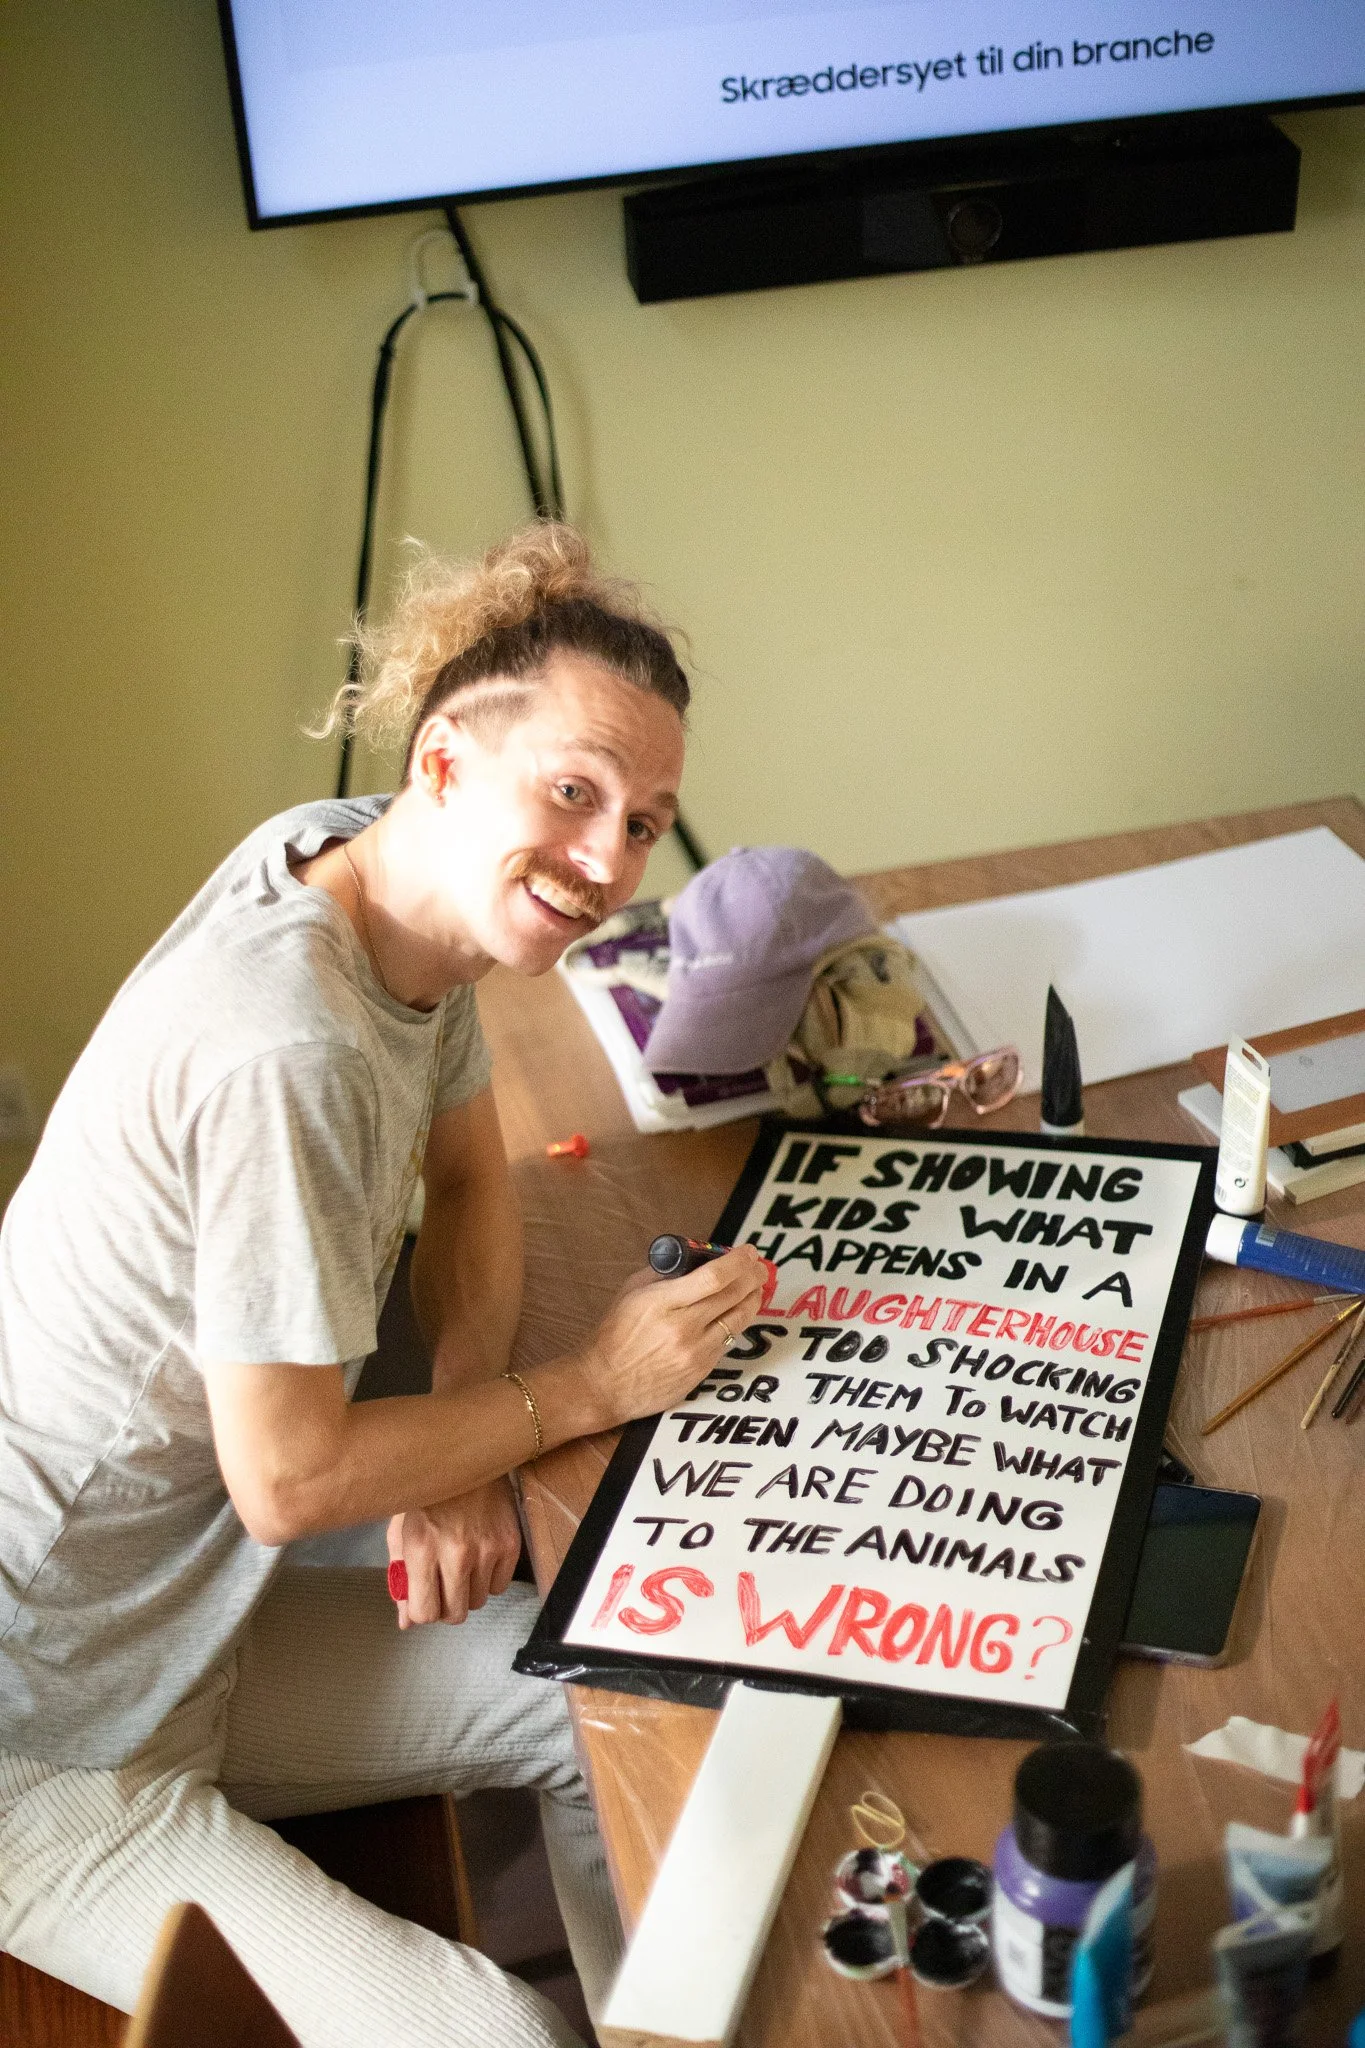 Skræddersyet til din branche
IF SHOWING
KIDS WHAT
HAPPENS IN A
LAUGHTERHOUSE
S TOO SHOCKING
FOR THEM TO WATCH
THEN MAYBE WHAT
WE ARE DOING
TO THE ANIMALS
IS WRONG?